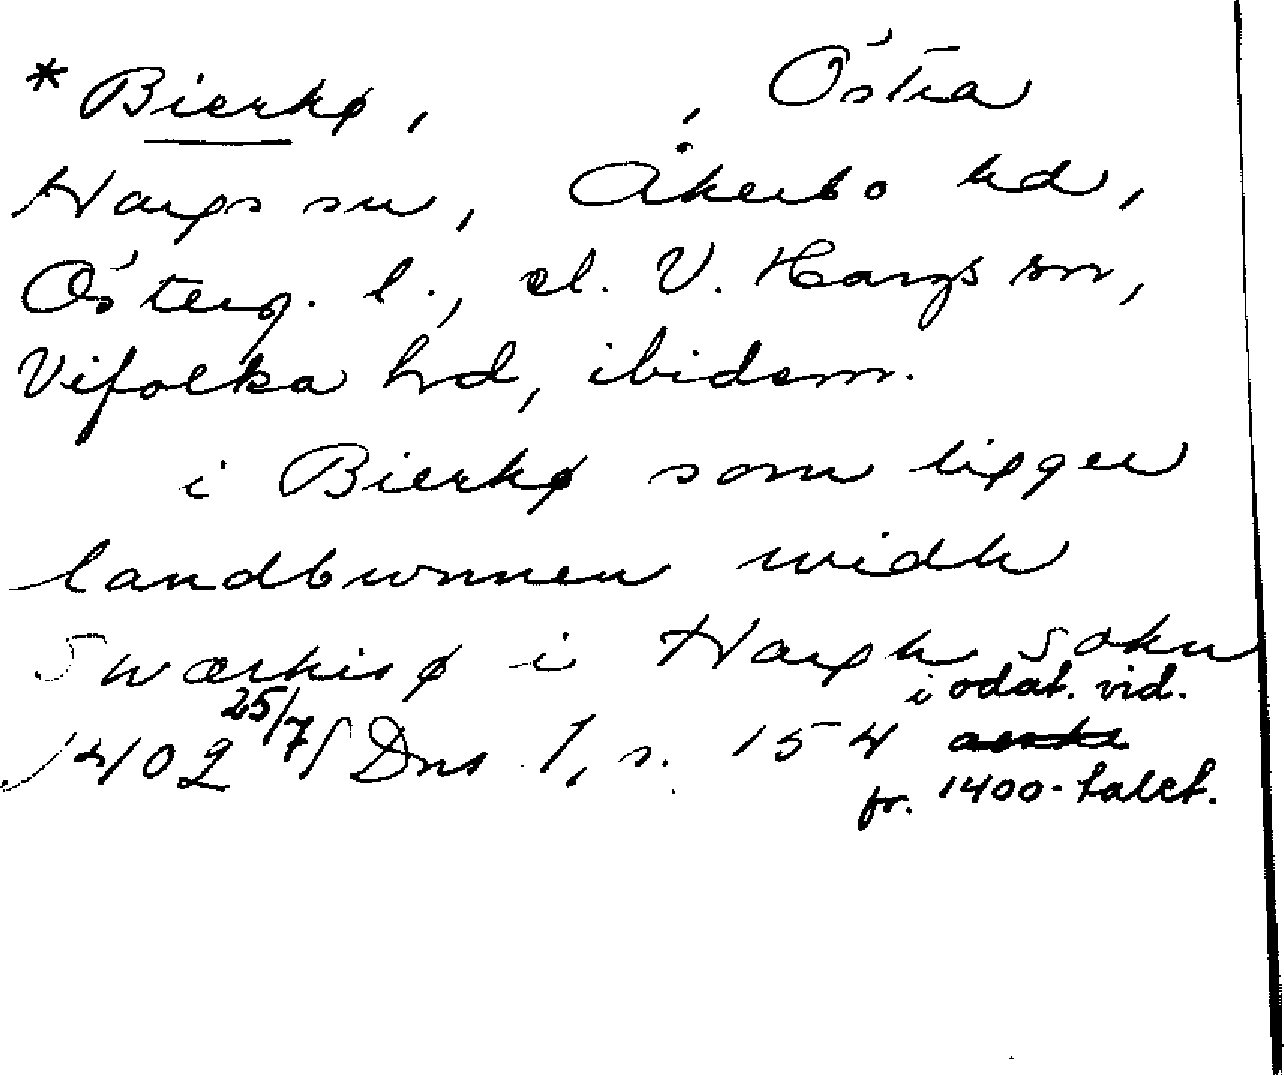 *Bierkø, , Östra
Hargs sn, Åkerbo hd,
Österg. l., el. V. Hargs sn,
Vifolka hd, ibidem.
i Bierkø som ligger
landbwnnen widh
Swærkisø i Hargh sokn
1402 25/7 Dns 1, s. 154 i odat. vid.
fr. 1400-talet.